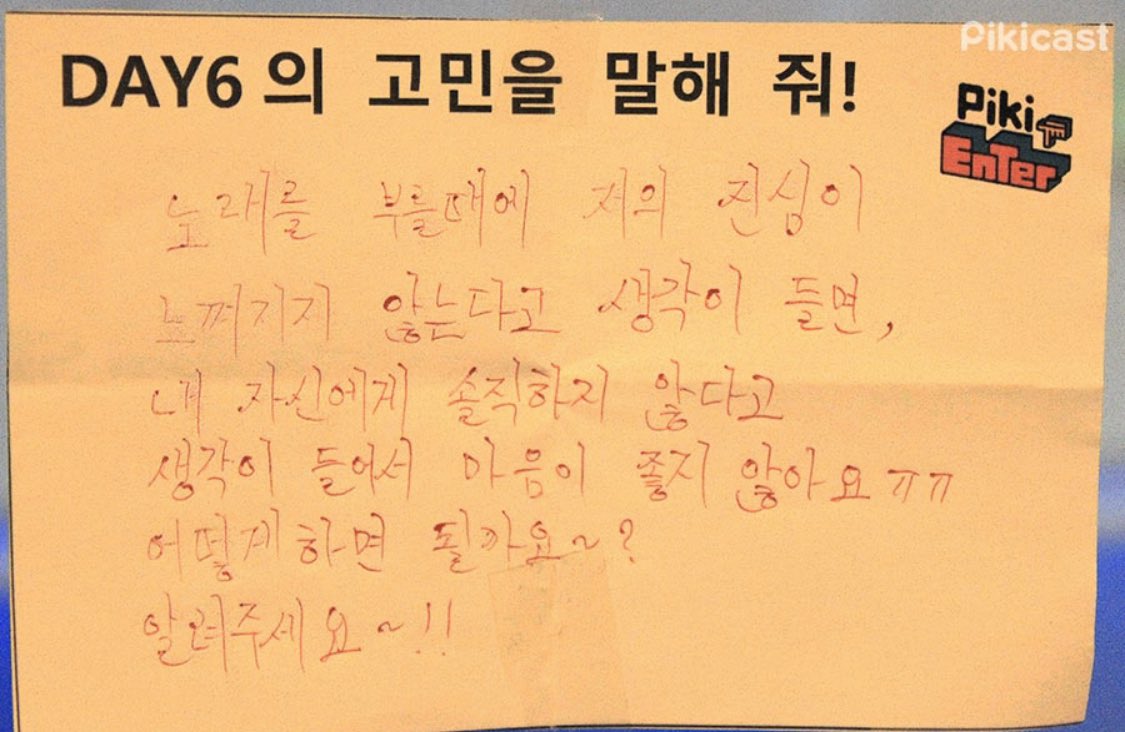 Pikicast
DAY6의 고민을 말해 줘!
Piki
EnTer
노래를 부를때에 저의 진심이
느껴지지 않는다고 생각이 들면,
내 자신에게 솔직하지 않다고
생각이 들어서 마음이 좋지 않아요 ㅠㅠ
어떻게하면 될까요~?
알려주세요~!!